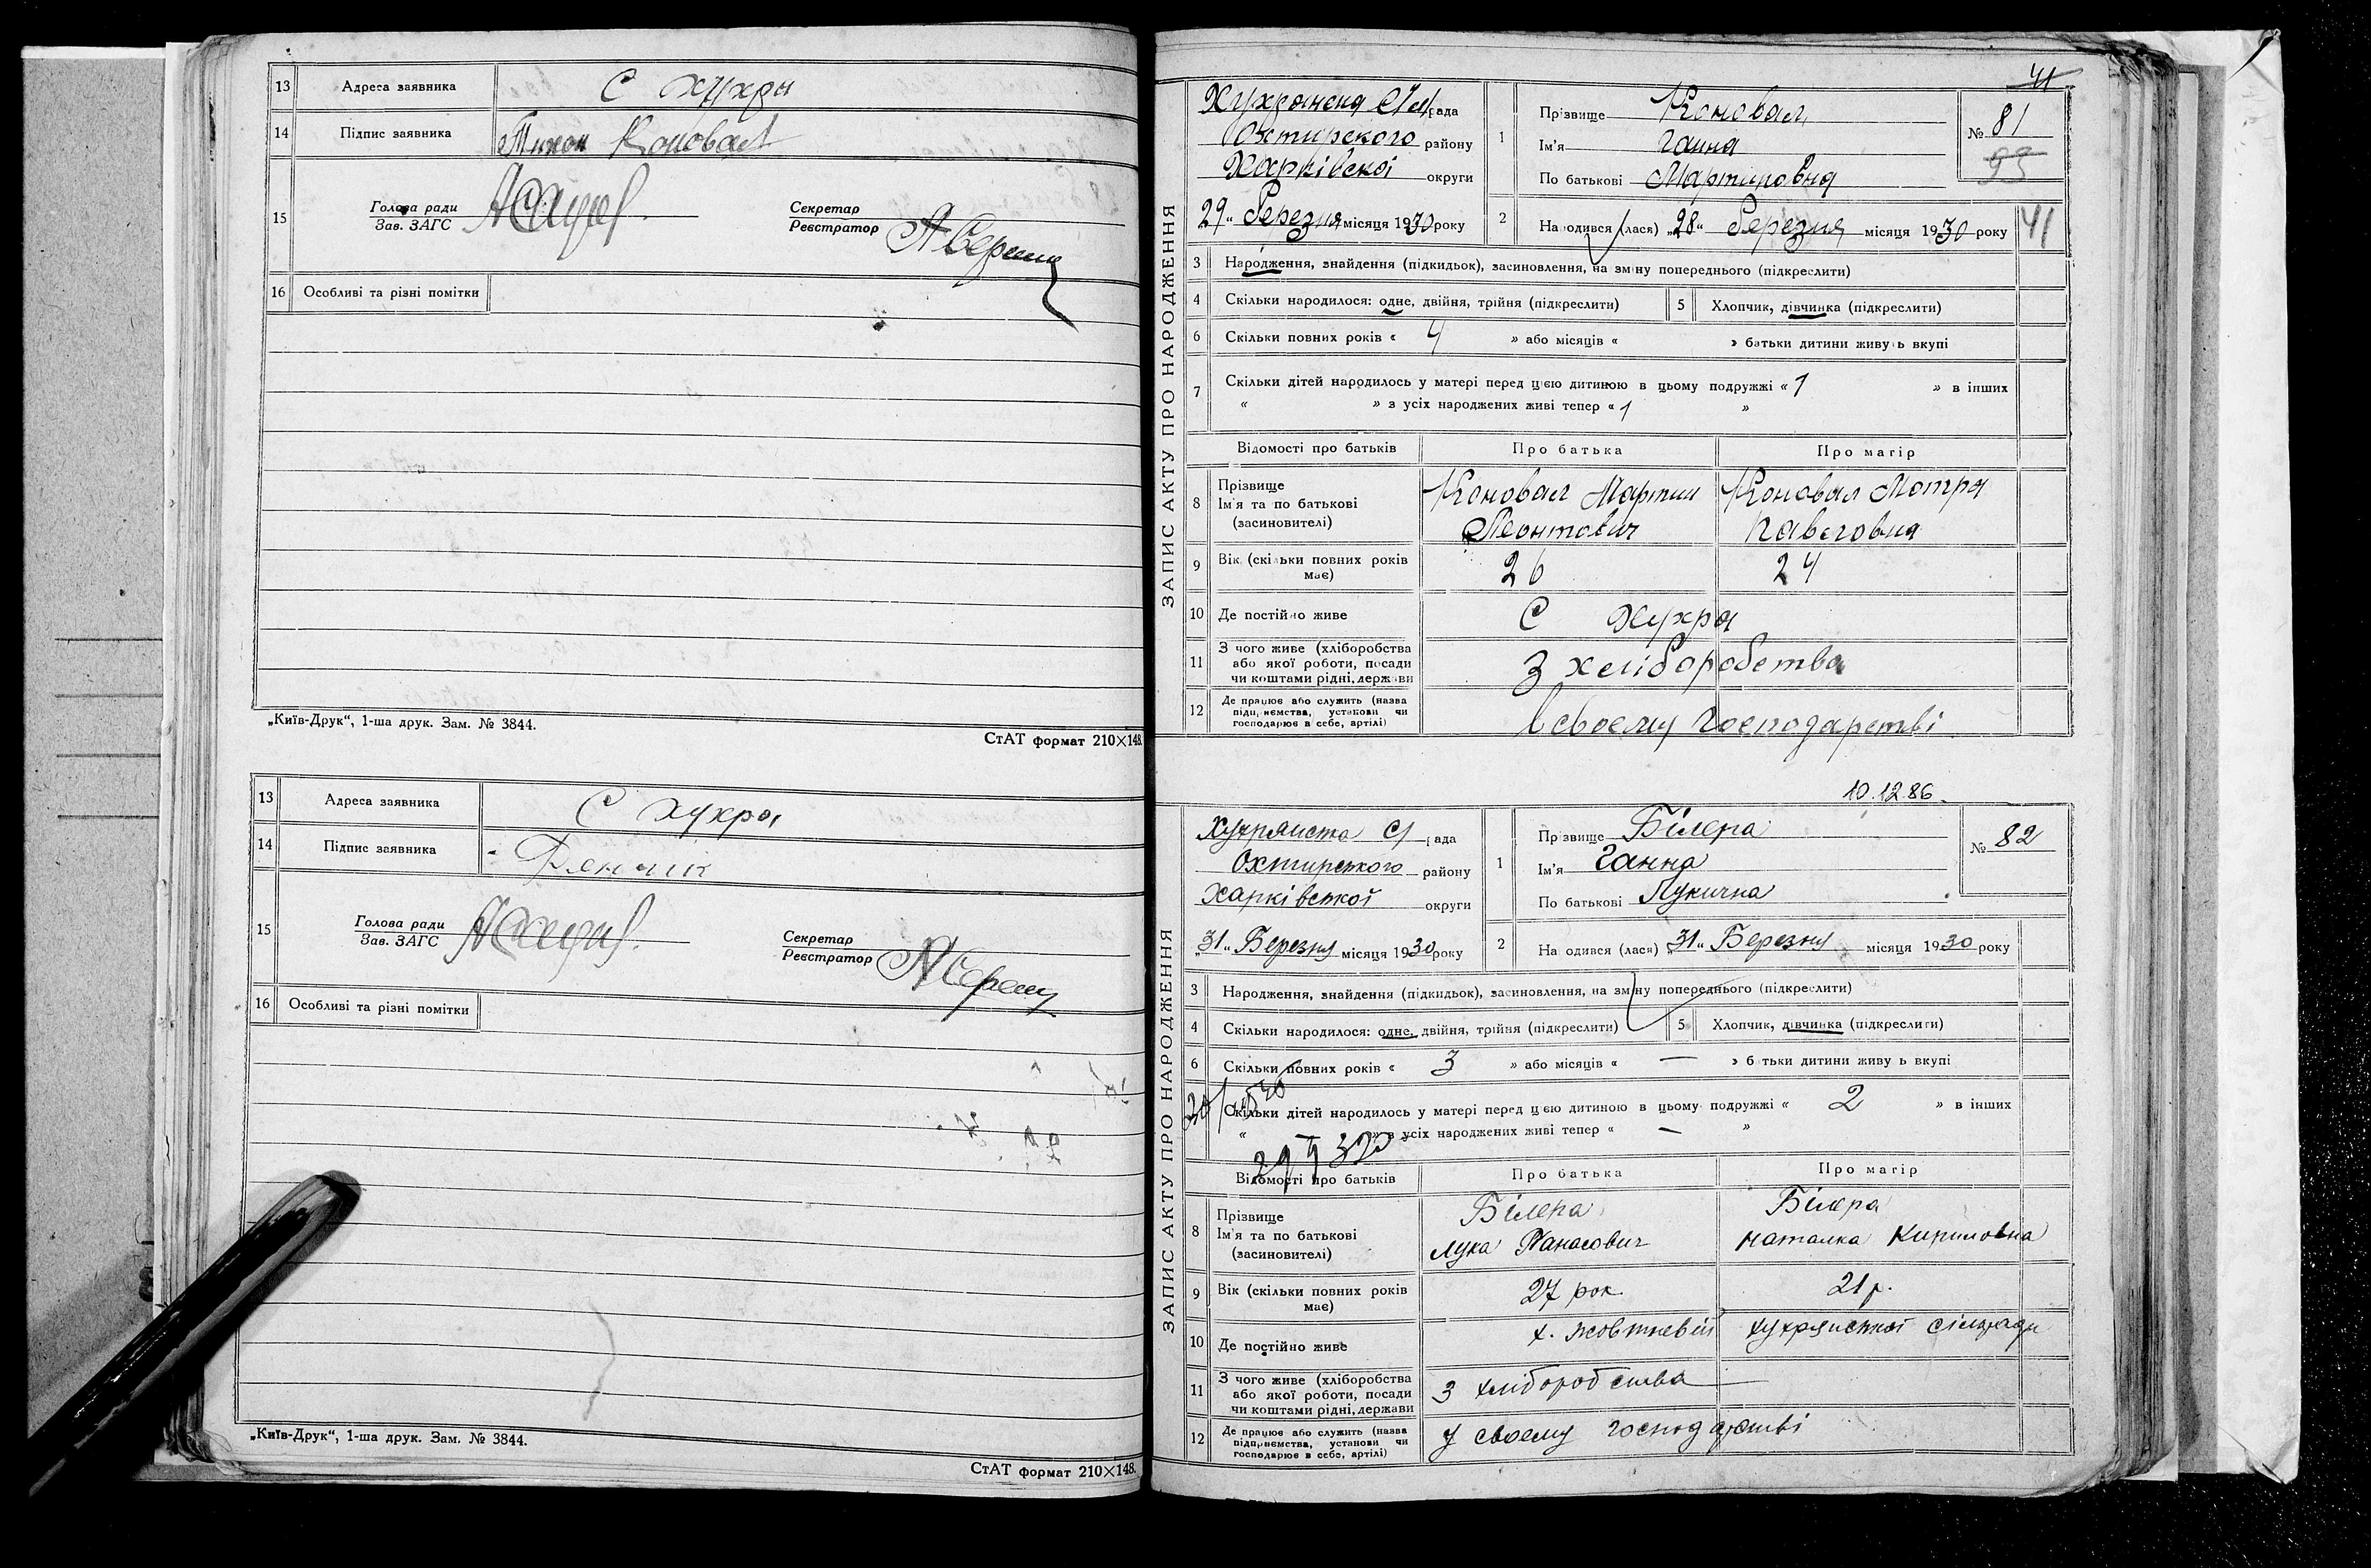 13 Адреса заявника С Хухра
14 Підпис заявника Коновал
15 Голова ради
Зав. ЗАГС
Секретар
Реєстратор
16 Особливі та різні помітки
„Київ-Друк“, 1-ша друк. Зам. № 3844.
СтАТ формат 210×148.
13 Адреса заявника С Хухра
14 Підпис заявника
15 Голова ради
Зав. ЗАГС
Секретар
Реєстратор
16 Особливі та різні помітки
„Київ-Друк“, 1-ша друк. Зам. № 3844.
СтАТ формат 210×148.
41
ЗАПИС АКТУ ПРО НАРОДЖЕННЯ
рада
Охтирского району
Харківскоі округи
29 “ березня місяця 1930 року
1 Прізвище Коновал
Ім'я Ганна
По батькові Мартиновна
№ 81
93
2 Народився (лася) „28“ березня місяця 1930 року
41
3 Народження, знайдення (підкидьок), засиновлення, на зміну попереднього (підкреслити)
4 Скільки народилося: одне, двійня, трійня (підкреслити)
5 Хлопчик, дівчинка (підкреслити)
6 Скільки повних років « 4 » або місяців « » батьки дитини живуть вкупі
7 Скільки дітей народилось у матері перед цією дитиною в цьому подружжі « 1 » в інших
« » з усіх народжених живі тепер « 1 »
Відомості про батьків
Про батька
Про матір
8 Прізвище
Ім'я та по батькові
(засиновителі)
Коновал Мартин
Леонтович
Коновал Мотря
Павловна
9 Вік (скільки повних років
має)
26
24
10 Де постійно живе С Хухра
11 З чого живе (хліборобства
або якої роботи, посади
чи коштами рідні, держави
З хліборобства
12 Де працює або служить (назва
підприємства, установи чи
господарює в себе, артілі)
в своему господарстві
10.12.86.
ЗАПИС АКТУ ПРО НАРОДЖЕННЯ
рада
Охтирского району
Харківскої округи
„31“ Березня місяця 1930 року
1 Прізвище Білера
Ім'я Ганна
По батькові Лукична
№ 82
2 Народився (лася) „31“ Березня місяця 1930 року
3 Народження, знайдення (підкидьок), засиновлення, на зміну попереднього (підкреслити)
4 Скільки народилося: одне, двійня, трійня (підкреслити)
5 Хлопчик, дівчинка (підкреслити)
6 Скільки повних років « 3 » або місяців « — » батьки дитини живуть вкупі
Скільки дітей народилось у матері перед цією дитиною в цьому подружжі « 2 » в інших
« » з усіх народжених живі тепер « — »
Відомості про батьків
Про батька
Про матір
8 Прізвище
Ім'я та по батькові
(засиновителі)
Білера
Лука Панасович
Білера
Наталка Кириловна
9 Вік (скільки повних років
має)
27 рок.
21 р.
10 Де постійно живе х. Жовтневий Хухрянської сільради
11 З чого живе (хліборобства
або якої роботи, посади
чи коштами рідні, держави
З хліборобства
12 Де працює або служить (назва
підприємства, установи чи
господарює в себе, артілі)
у своему господарстві